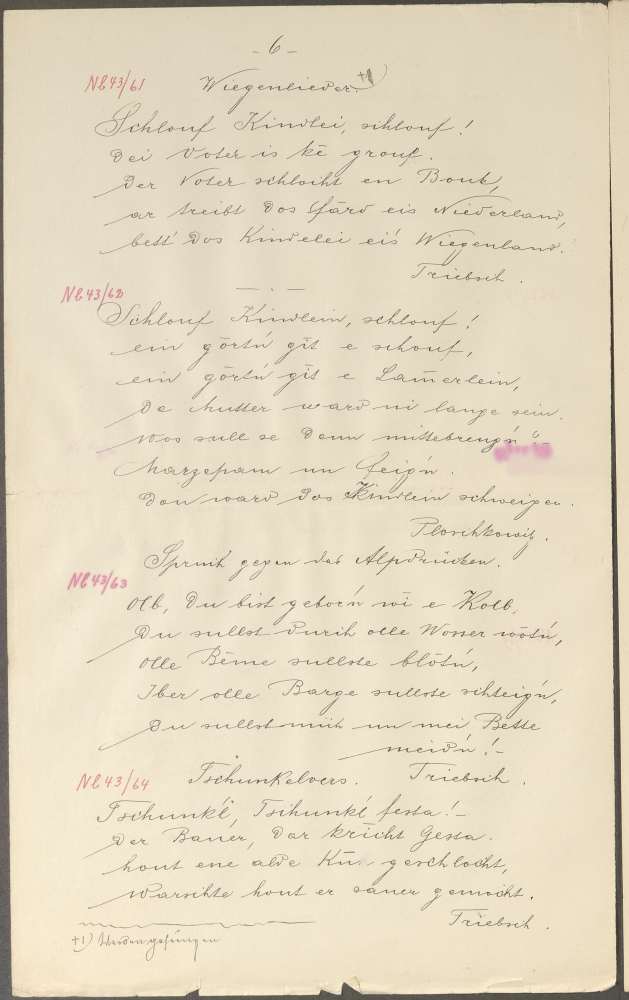 - 6 -
Nb 43/61 Wiegenlieder. +1)
Schlouf Kindlei, schlouf!
Dei Voter is kē grouf.
Der Voter schlocht en Bouk,
ar treibt dos Fārd eis Niederland,
bett' dos Kindelei eis Wiegenland.
Triebsch.
Nb 43/62
Schlouf Kindlein, schlouf!
ein gōrtn gīt e schouf,
ein gōrtn gīt e Lam̄erlein,
de Mutter ward ni lange sein.
Wos sull se denn mittebreng'n?
Marzepam un Feig'n.
Don ward dos Kindlein schweigen.
Ploschkowitz.
Spruch gegen das Alpdrücken.
Nb 43/63
Olb, Du bist gebor'n wi e Kolb,
Du sullst durch olle Wosser wōt'n,
Olle Bēme sullste blōt'n,
Iber olle Barge sullste schteig'n,
Du sullst mich un mei Bette
meid'n! -
Nb 43/64 Tschunkelvers. Triebsch.
Tschunk'l, Tschunk'l festa! -
Der Bauer, dar kricht Gesta.
hout ene alde Kū geschlocht,
Warschte hout er sauer gemocht.
Triebsch.
+1) Werden gesungen